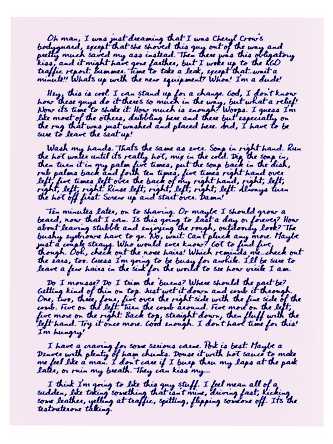 Oh man, I was just dreaming that I was Cheryl Crow's
bodyguard, except that she shoved this guy out of the way and
pretty much saved my ass instead. Then there was this obligatory
kiss, and it might have gone farther, but I woke up to the 1:00
traffic report. Bummer. Time to take a leak, except that...wait a
minute!! What's up with the new equipment? Whoa! I'm a dude!
Hey, this is cool. I can stand up for a change. God, I don't know
how these guys do it-there's so much in the way, but what a relief!
Now it's time to shake it. How much is enough? Woops. I guess I'm
like most of the others, dribbling here and there but especially on
the rug that was just washed and placed here. And, I have to be
sure to leave the seat up!
Wash my hands. That's the same ease. Soap in right hand. Run
the hot water until it's really hot, mix in the cold. Dip the soap in,
then turn it in my palm five times, put the soap back in the dish,
rub palms back and forth ten times, five times right hand over
left, five times left over the back of my right hand, right, left,
right, left, right. Rinse left, right, left, right, left. Always turn
the hot off first. Screw up and start over. Damn!
Ten minutes later, on to shaving. Or maybe I should grow a
beard, now that I can. Is this going to last a day or forever? How
about leaving stubble and enjoying the rough, outdoorsy look? The
bushy eyebrows have to go. No, wait. Can't pluck any more. Maybe
just a couple strays. Who would ever know? Got to find five,
though. Ooh, check out the nose hairs! Which reminds me...check out
the ears, too. Guess I'm going to be busy for awhile. I'll be sure to
leave a few hairs in the sink for the world to see how virile I am.
Do I mousse? Do I trim the burns? Where should the part be?
Getting kind of thin on top. Just wet it down and comb it through.
One, two, three, four, five over the right side with the fine side of the
comb. Five on the left. Turn the comb around. Five more on the left;
five more on the right. Back top, straight down, then fluff with the
left hand. Try it once more. Good enough. I don't have time for this!
I'm hungry!
I have a craving for some serious carne. Pork is best. Maybe a
Denver with plenty of ham chunks. Douse it with hot sauce to make
me feel like a man. I don't care if I burp thru my laps at the park
later, or ruin my breath. They can kiss my...
I think I'm going to like this guy stuff. I feel mean all of a
sudden, like taking something that isn't mine, driving fast, kicking
some leather, yelling at traffic, spitting, flipping someone off. It's the
testosterone talking.